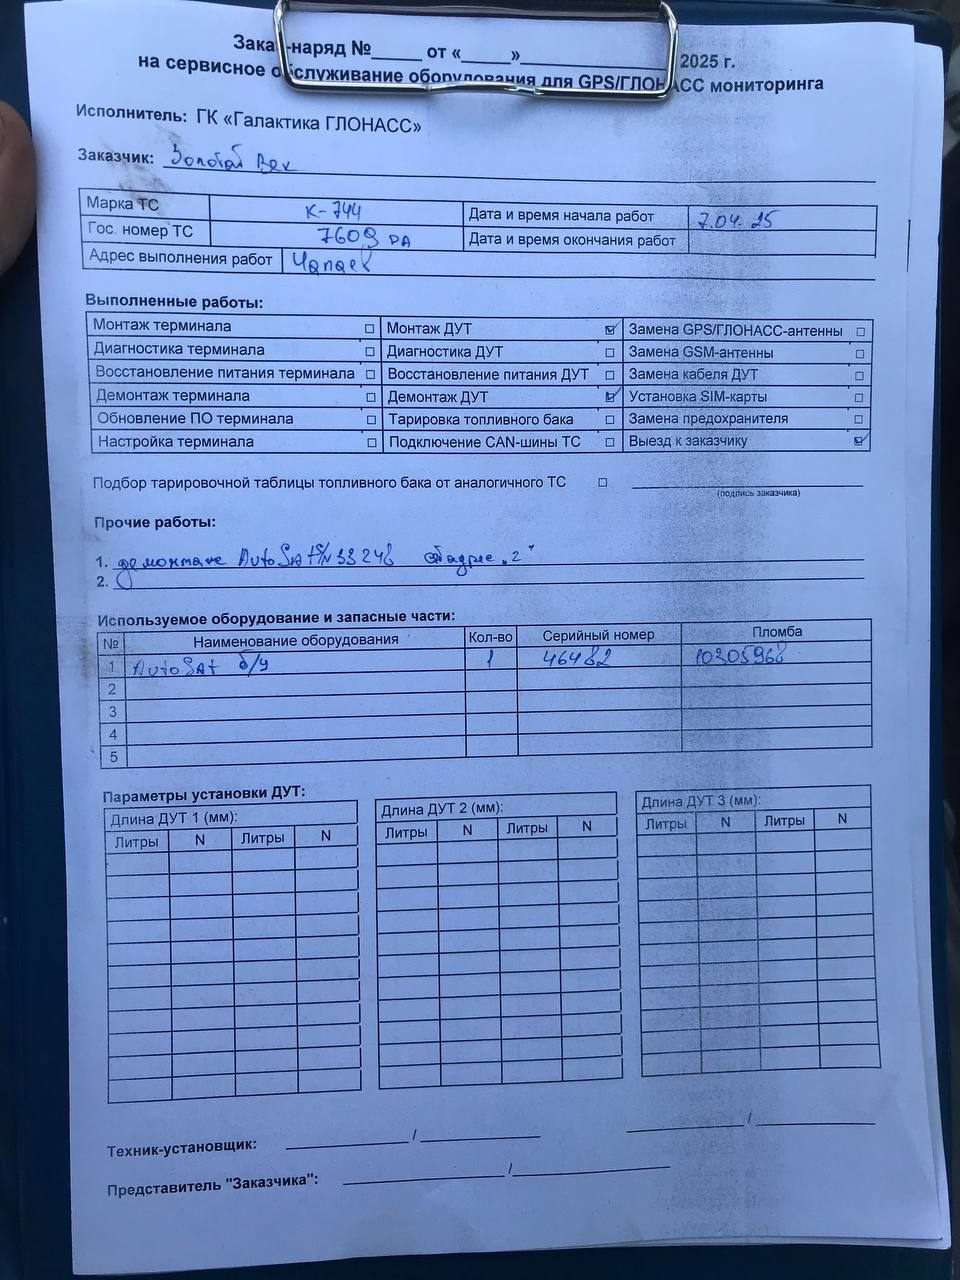 Заказ-наряд №_____ от «_____»_______________ 2025 г.
на сервисное обслуживание оборудования для GPS/ГЛОНАСС мониторинга
Исполнитель: ГК «Галактика ГЛОНАСС»
Заказчик: Золотой Век
Марка ТС К-744 Дата и время начала работ 7.04.25
Гос. номер ТС 7609 РА Дата и время окончания работ
Адрес выполнения работ Чапаев
Выполненные работы:
Монтаж терминала ☐ Монтаж ДУТ ☑ Замена GPS/ГЛОНАСС-антенны ☐
Диагностика терминала ☐ Диагностика ДУТ ☐ Замена GSM-антенны ☐
Восстановление питания терминала ☐ Восстановление питания ДУТ ☐ Замена кабеля ДУТ ☐
Демонтаж терминала ☐ Демонтаж ДУТ ☑ Установка SIM-карты ☐
Обновление ПО терминала ☐ Тарировка топливного бака ☐ Замена предохранителя ☐
Настройка терминала ☐ Подключение CAN-шины ТС ☐ Выезд к заказчику ☑
Подбор тарировочной таблицы топливного бака от аналогичного ТС ☐
(подпись заказчика)
Прочие работы:
1. демонтаж AutoSat S/N 33248 "2"
2.
Используемое оборудование и запасные части:
№ Наименование оборудования Кол-во Серийный номер Пломба
1 AutoSat б/у 1 46482 10305968
2
3
4
5
Параметры установки ДУТ:
Длина ДУТ 1 (мм): Длина ДУТ 2 (мм): Длина ДУТ 3 (мм):
Литры N Литры N Литры N Литры N Литры N Литры N
Техник-установщик: __________ / __________ __________ / __________
Представитель "Заказчика": __________ / __________